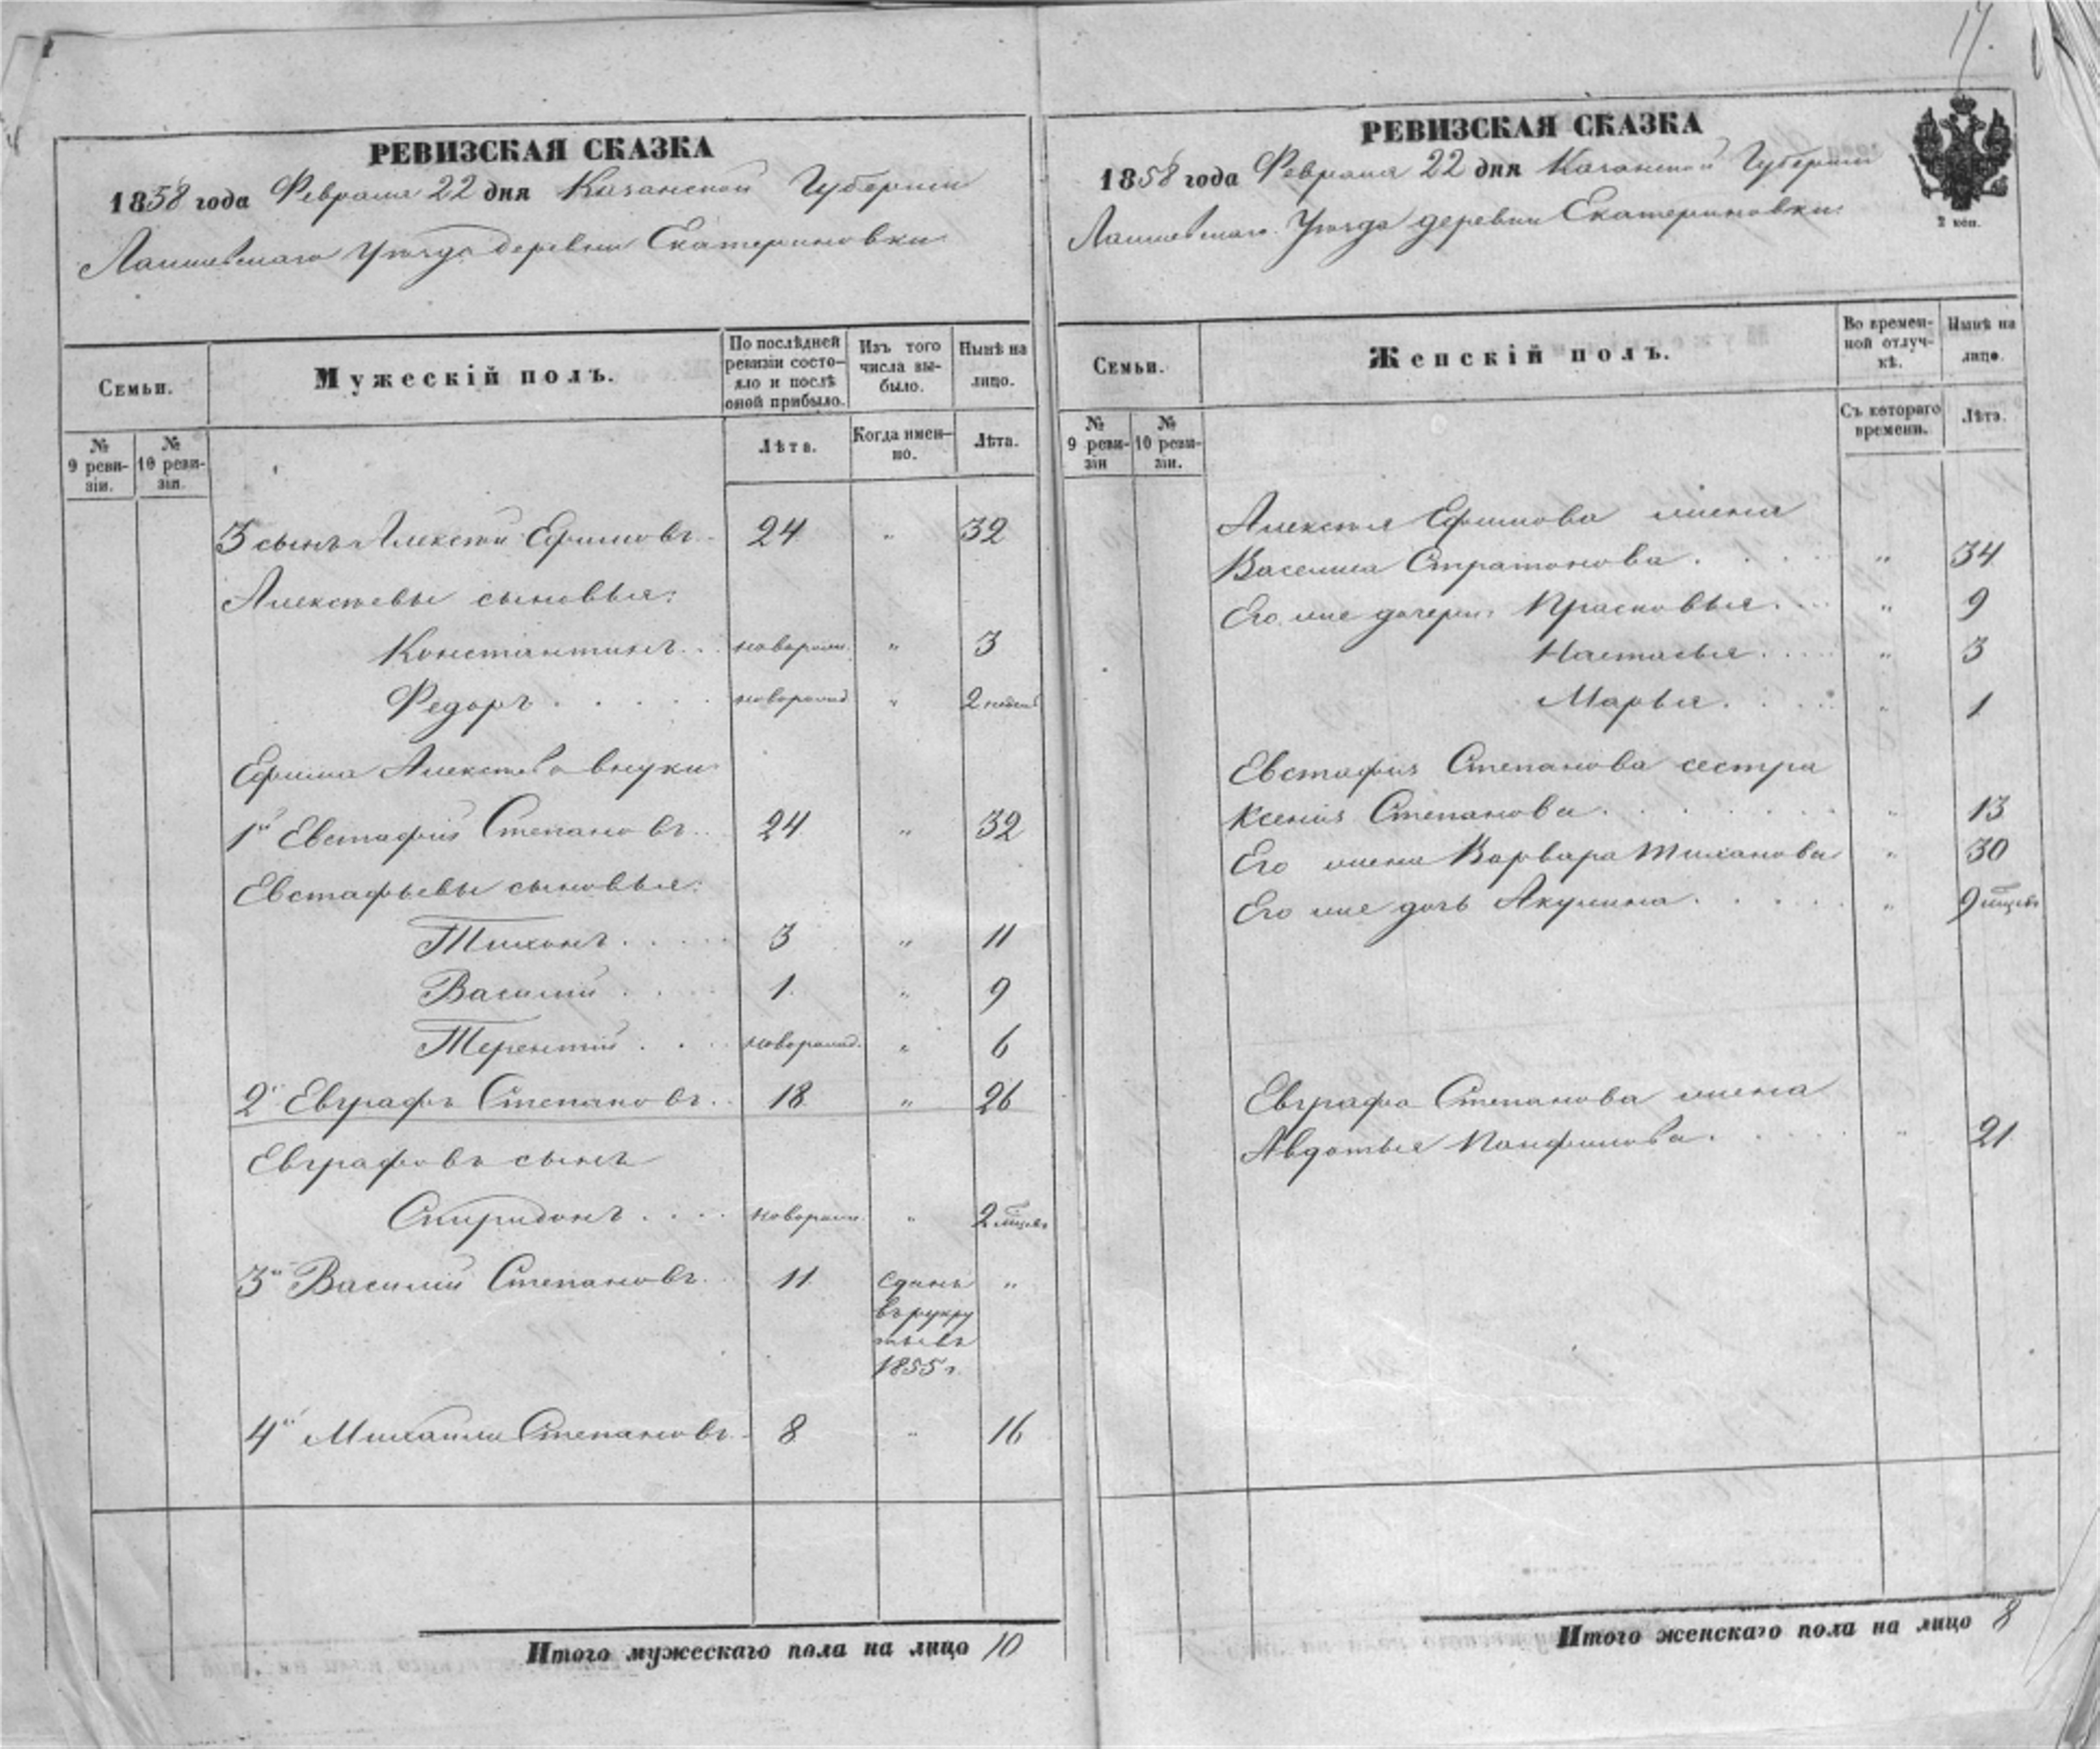 17.
РЕВИЗСКАЯ СКАЗКА
1858 года Февраля 22 дня Казанской Губернiи
Лаишевскаго Уѣзда деревни Екатериновки
Семьи.
Мужескiй полъ.
По послѣдней ревизiи состо-
яло и послѣ
оной прибыло.
Изъ того
числа вы-
было.
Нынѣ на
лицо.
№
9 реви-
зiи.
№
10 реви-
зiи.
Лѣта.
Когда имен-
но.
Лѣта.
3 сынъ Алексѣй Ефимовъ 24 " 32
Алексѣевы сыновья:
Константинъ . . новорожд. " 3
Федоръ . . . . . новорожд " 2 недѣл
Ефима Алексѣева внуки
1й Евстафiй Степановъ . . 24 " 32
Евстафьевы сыновья:
Тихонъ . . . . . 3 " 11
Василiй . . . . 1 " 9
Терентiй . . . новорожд. " 6
2й Евграфъ Степановъ . . 18 " 26
Евграфовъ сынъ
Спиридонъ . . . . новорожд. " 2 мѣсяцъ
3й Василiй Степановъ . . 11 сданъ "
въ рекру
ты въ
1855 г.
4й Михайла Степановъ 8 " 16
Итого мужескаго пола на лицо 10
РЕВИЗСКАЯ СКАЗКА
1858 года Февраля 22 дня Казанской Губернiи
Лаишевскаго Уѣзда деревни Екатериновки
2 коп.
Семьи.
Женскiй полъ.
Во времен-
ной отлуч-
кѣ.
Нынѣ на
лицо.
№
9 реви-
зiи
№
10 реви-
зiи.
Съ котораго
времени.
Лѣта.
Алексѣя Ефимова жена
Василиса Стратонова . . . . " 34
Его же дочери: Прасковья . . . " 9
Настасья . . . . " 3
Марья . . . . " 1
Евстафiя Степанова сестра
Ксенiя Степанова . . . . . . . " 13
Его жена Варвара Тиханова " 30
Его же дочь Акулина . . . . . " 9 мѣсяцъ
Евграфа Степанова жена
Авдотья Панфилова . . . . . " 21
Итого женскаго пола на лицо 8